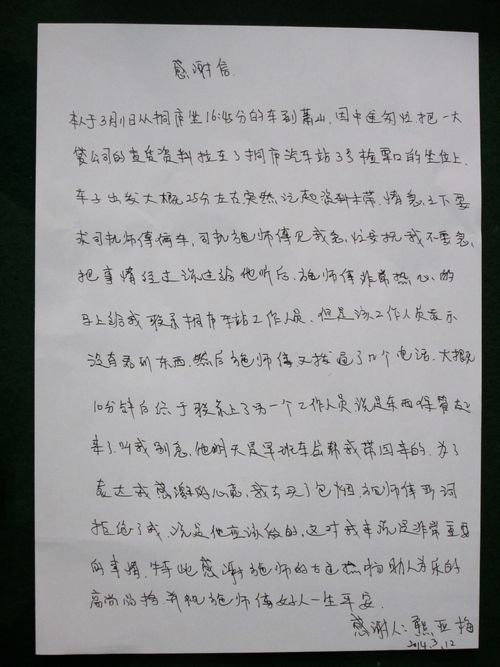 感谢信.
本人于3月11日从桐庐坐16:45分的车到萧山,因中途匆忙把一大
袋公司的重要资料拉在了桐庐汽车站3号检票口的坐位上.
车子出发大概25分左右突然记起资料未带,情急之下要
求司机师傅停车,司机施师傅见我急,忙安抚我不要急,
把事情经过讲述给他听后,施师傅非常热心的
马上给我联系桐庐车站工作人员.但是该工作人员表示
没有看到东西.然后施师傅又拨通了几个电话.大概
10分钟后终于联系上了另一个工作人员说是东西保管起
来了.叫我别急.他明天是早班车会帮我带回来的.为了
表达我感谢的心意,我去买了包烟.施师傅婉词
拒绝了我,说是他应该做的,这对我来说是非常重要
的事情.特此感谢施师的古道热肠助人为乐的
高尚品格.并祝施师傅好人一生平安.
感谢人:熊亚梅
2014.3.12